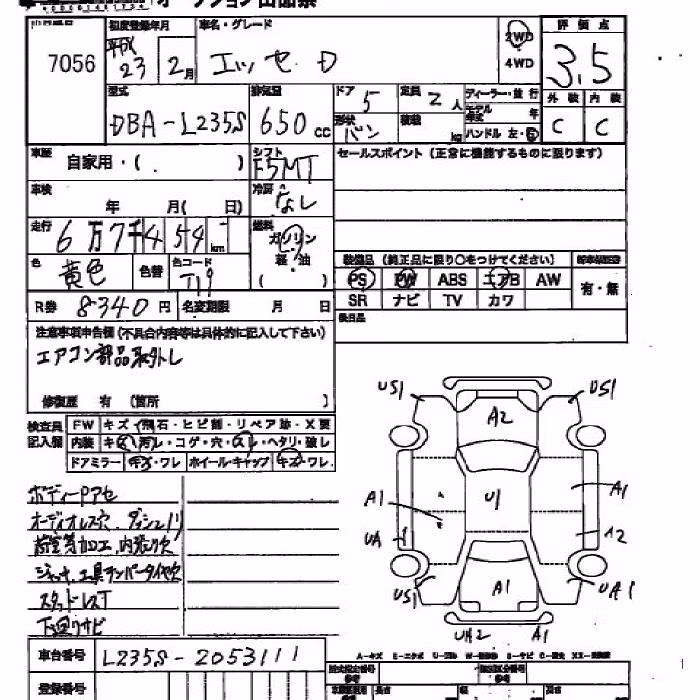 7056
初度登録年月
平成
23
2月
車名・グレード
エッセ D
2WD
4WD
評価点
3.5
型式
DBA-L235S
排気量
650 cc
ドア
5
定員
2人
形状
バン
積載
kg
ディーラー・並行
モデル年式
年
ハンドル 左・右
外装
内装
C
C
車歴
自家用・( )
シフト
F5MT
セールスポイント (正常に機能するものに限ります)
車検
年 月( 日)
冷房
なし
走行
6万7千454 km
燃料
ガソリン
軽・油
( )
色
黄色
色替
色コード
装備品 (純正品に限り○をつけてください)
PS
PW
ABS
エアB
AW
SR
ナビ
TV
カワ
有・無
R券
8340円
名変期限
月 日
後日品
注意事項申告欄 (不具合内容等は具体的に記入して下さい)
エアコン部品取外し
修復歴 有 (箇所 )
検査員
記入欄
FW
キズ・飛石・ヒビ割・リペア跡・X要
内装
キズ・汚レ・コゲ・穴・スレ・ヘタリ・破レ
ドアミラー
キズ・ワレ
ホイールキャップ
キズ・ワレ
US1
US1
A2
A1
U1
A1
UA
US1
A1
UA1
UA2
A1
ボディーPアセ
オーディオレス穴
スタッドレスT
下回りサビ
車台番号
L235S-2053111
登録番号